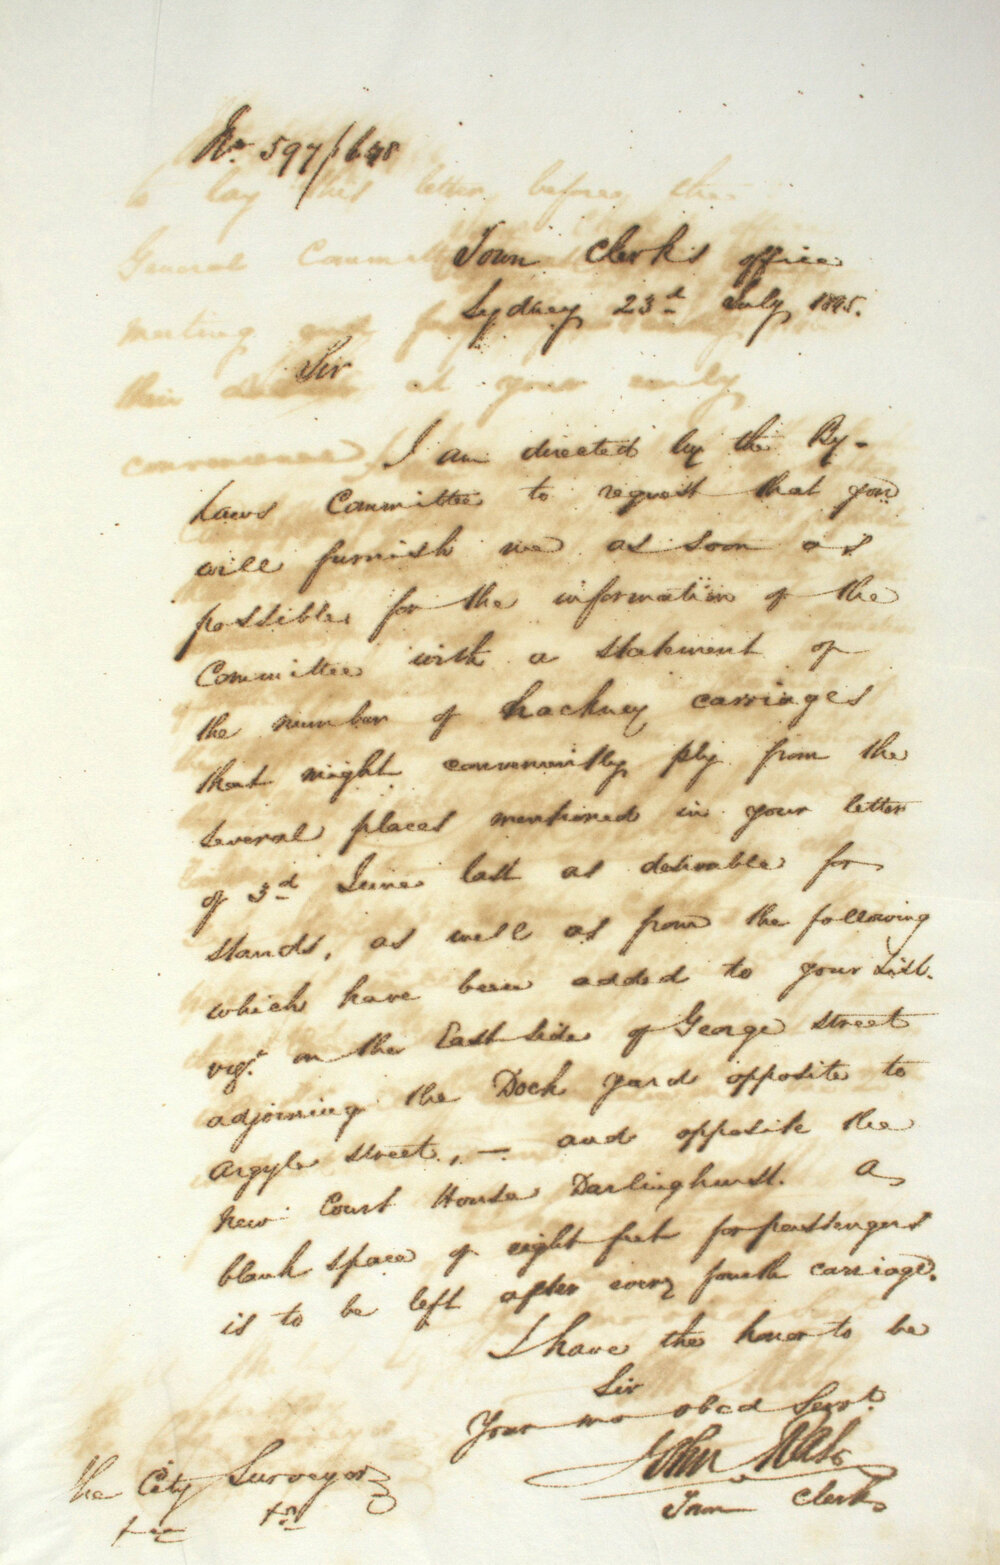 No. 597/648
Town Clerk's office
Sydney 23d July 1845.
Sir
I am directed by the By-
Laws Committee to request that you
will furnish me as soon as
possible, for the information of the
Committee with a statement of
the number of hackney carriages
that might conveniently ply from the
several places mentioned in your letter
of 3d June last as desirable for
stands, as well as from the following
which have been added to your List.
vizt. on the East side of George Street
adjoining the Dock yard opposite to
Argyle Street, — and opposite the
New Court House Darlinghurst. a
blank space of eight feet for passengers
is to be left after every fourth carriage.
I have the honor to be
Sir
Your mo obed Servt.
John
Town Clerk
The City Surveyor
to lay this letter before the
General Committee
meeting
their at your early
convenience